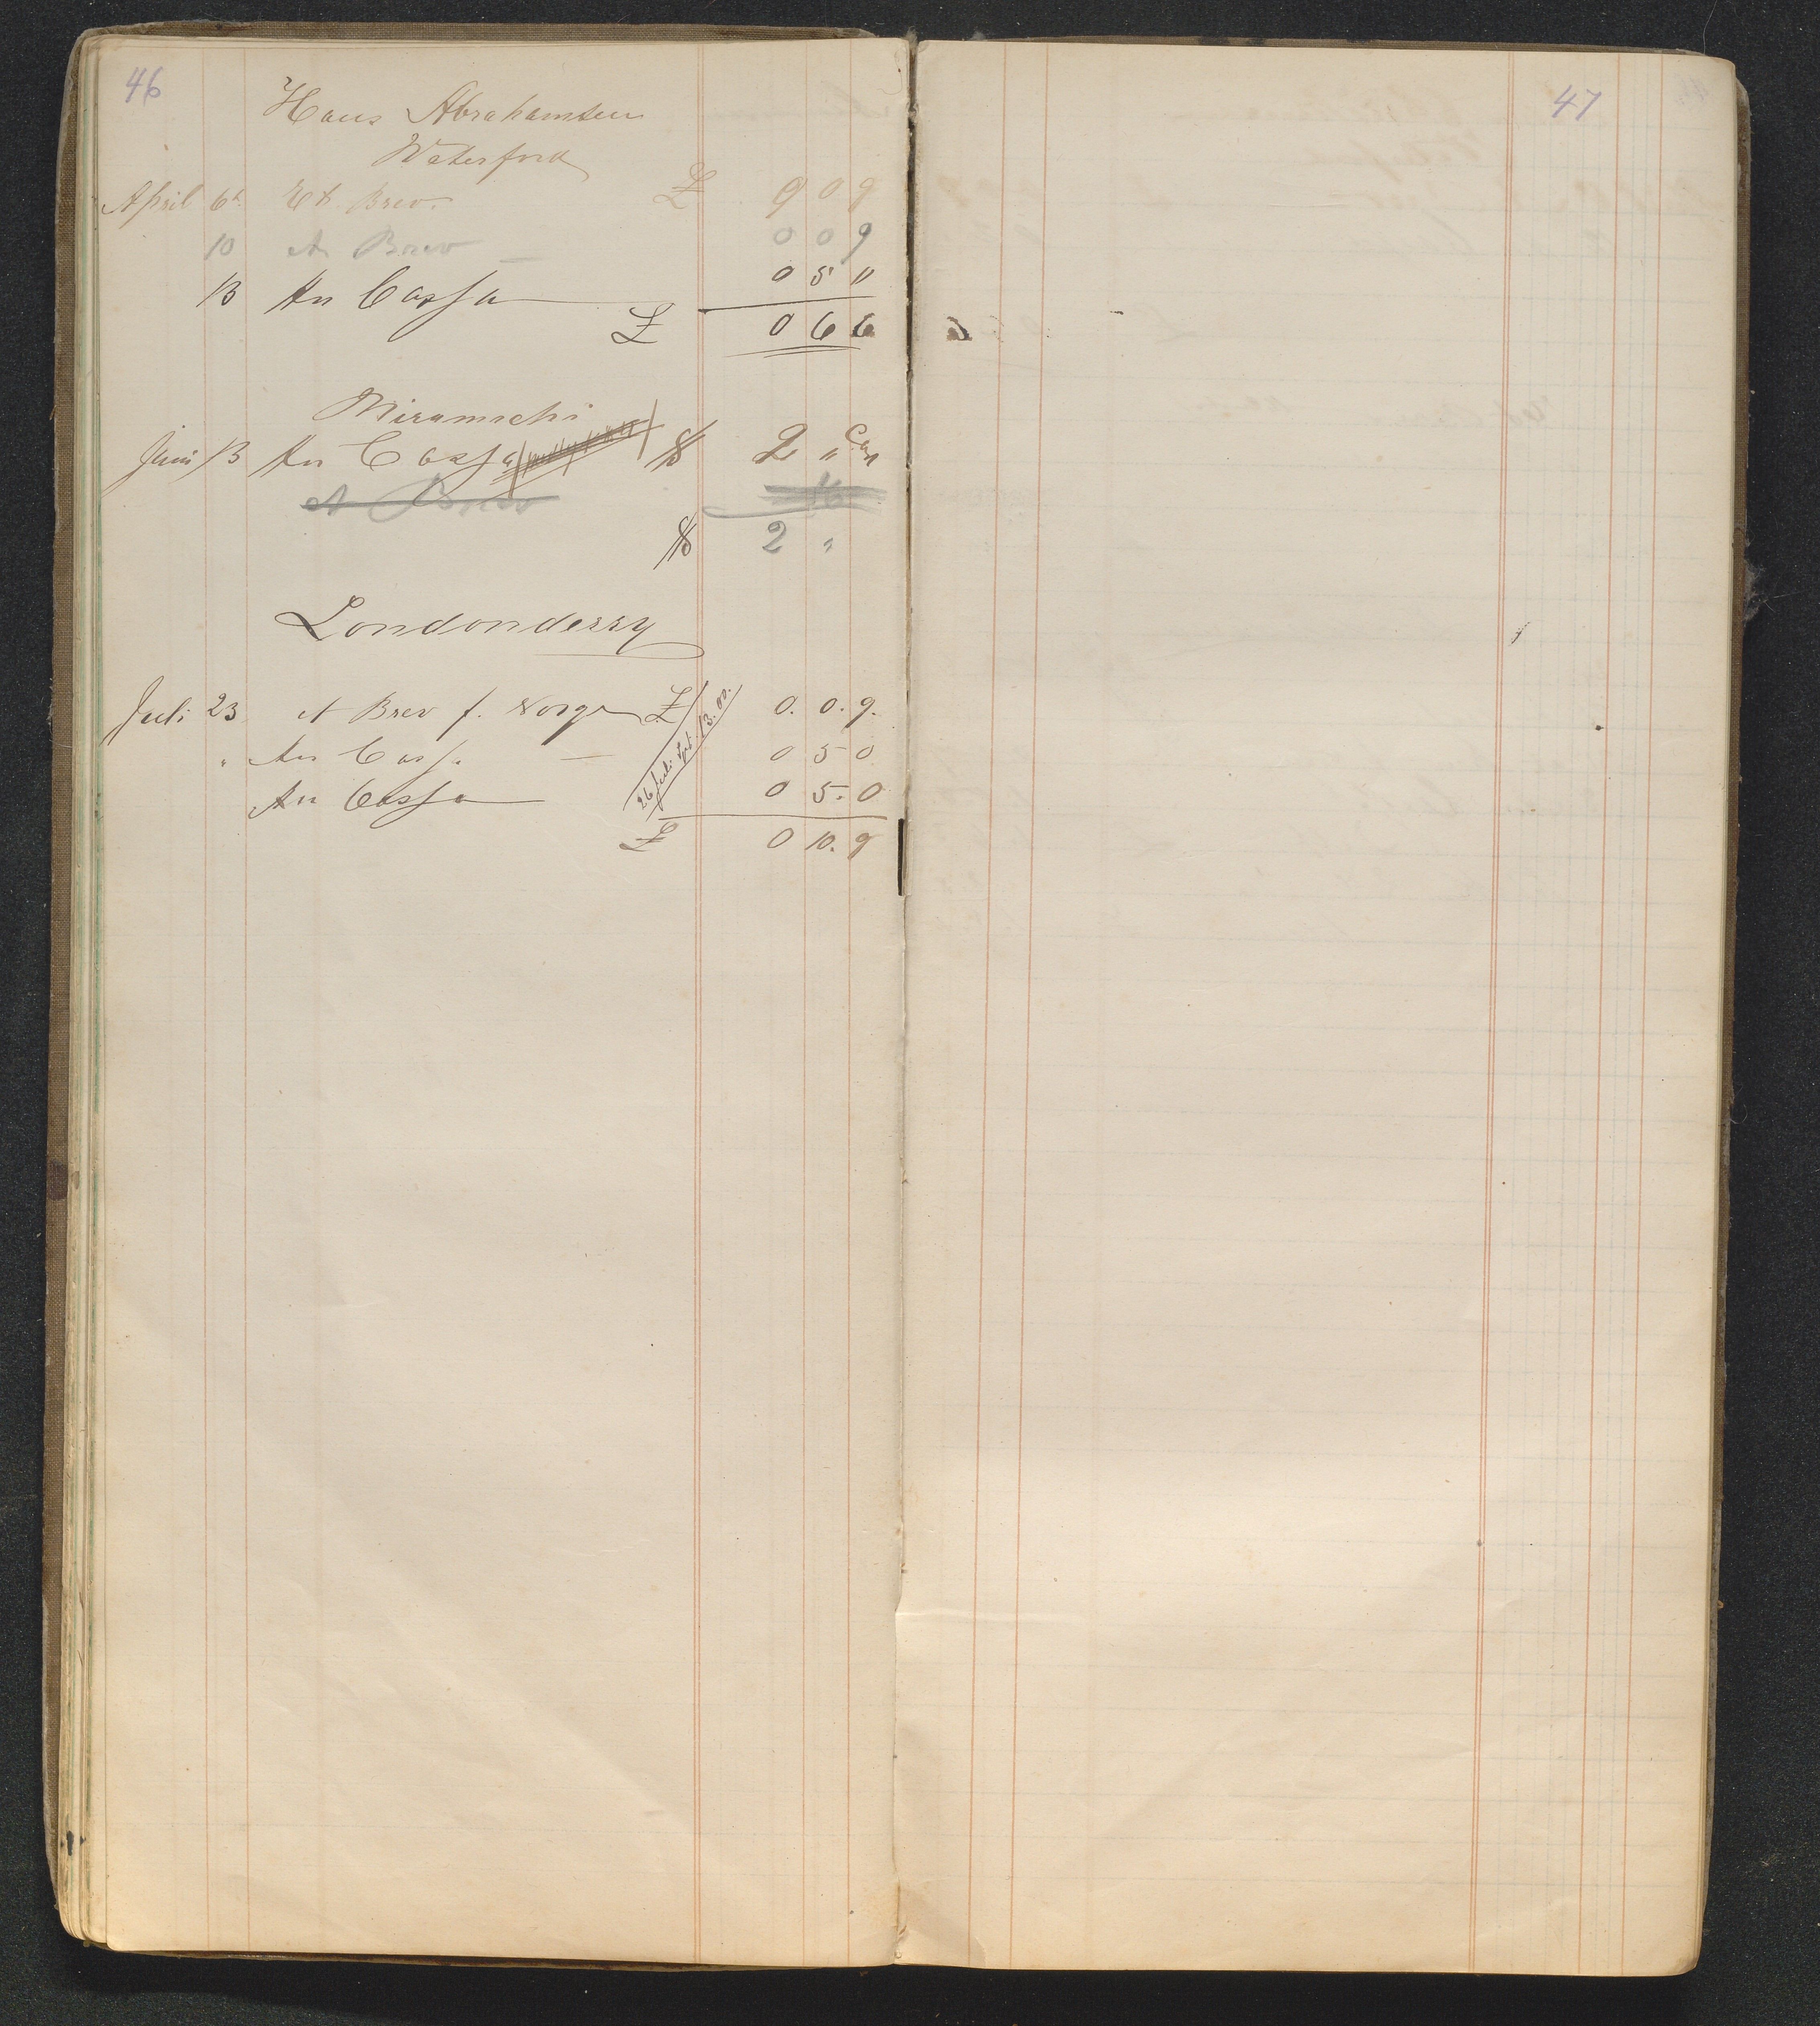 46
Hans Abrahamsen
Waterford
April 6t Et Brev. £ 0 0 9
10 A Brev — 0 0 9
13 An Cassa — 0 5 0
£ 0 6 6
Miramichi
Juni 13 An Cassa $ 2 "
A Brev 16
$ 2 "
Londonderry
Juli 23 A Brev f. Norge £ 0. 0. 9.
26 Juli 13.00.
" An Cassa — 0 5 0
An Cassa — 0 5. 0
£ 0 10. 9
47